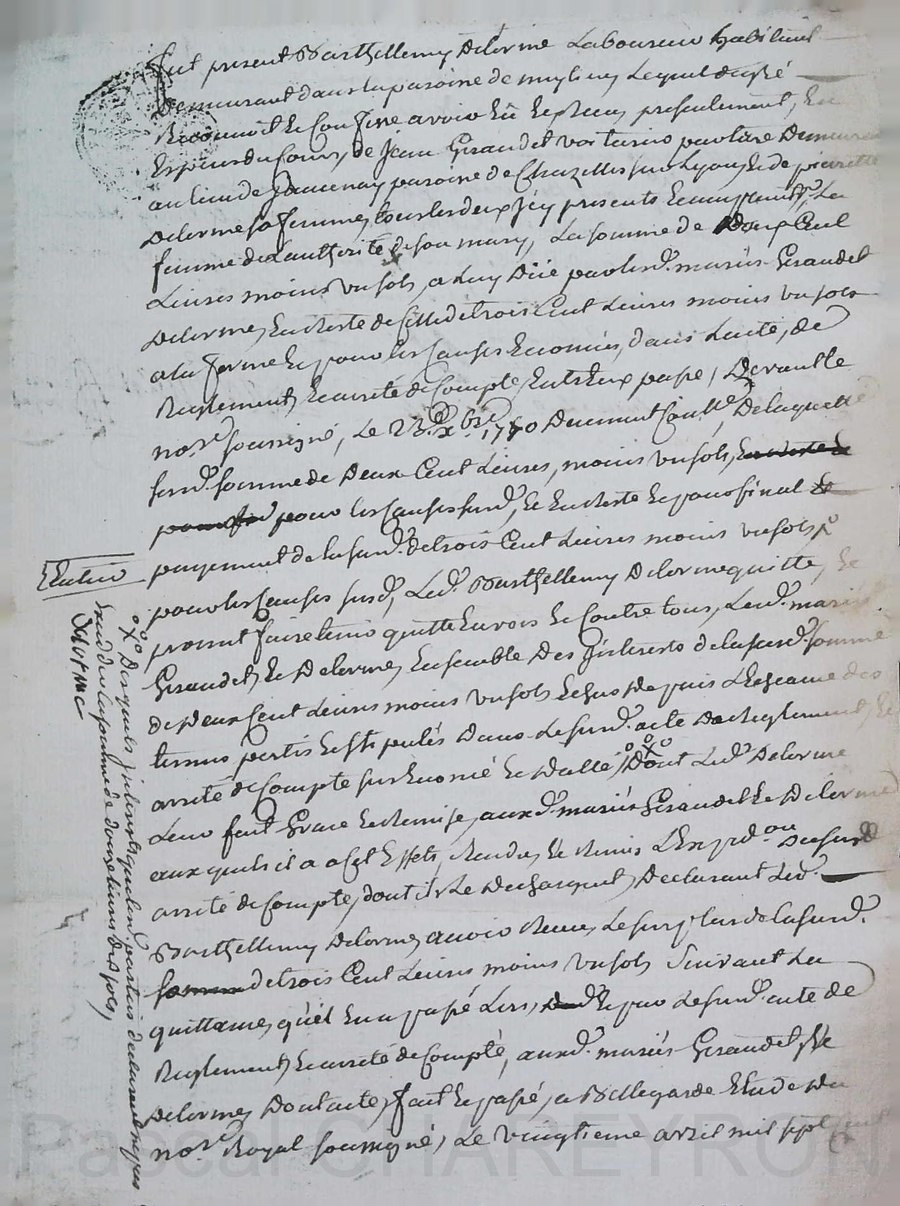 fut present Barthellemy Delorme Laboureur habitant
Demeurant dans la paroisse de Lequel de gré
Reconnoit et Confesse avoir Eû et Reçeu presentement, En
Especes du Cours, de Jean Giraudet voiturier par terre Demeurant
au lieu de paroisse de Chazelles sur Lyon, et de pierrette
Delorme sa femme, tous les deux j'cy presents Et acceptants, La
femme de L'autthorité de son mary, La somme de Deux Cent
Livres moins un sols, a Luy Düe par lesd. mariés Giraudet
Delorme, En Reste de Celle de trois Cent Livres moins un sols
a la forme Et pour les Causes Enoncées, dans L'acte, de
Reglement, Et arreté de Compte, Entr'Eux passé, Devant le
nore. soussigné, Le 23e. xbre. 1780 Duement Conttlé, De laquelle
susd. somme de Deux Cent Livres, moins un sols,
pour les Causes susd. Et En Reste Et pour final
payement de la susd. de trois Cent Livres moins un sols
pour les Causes susd, Led. Barthellemy Delorme quitte, Et
promet faire tenir quitte Envers Et Contre tous, Lesd. mariés
Giraudet, Et Delorme, Ensemble Des Jnterests de la susd. somme
de Deux Cent Livres moins un sols Echus Depuis L'Echeance des
termes portés Et stipulés Dans Le susd. acte De Reglement, Et
arreté de Compte sus Enoncé Et Datté, °X° Dont Led. Delorme
Leur fait Grace Et Remise, aux d. mariés Giraudet Et Delorme
aux quels il a a cet Effet, Rendu, Et Remis L'Exp.d. ou Du susd.
arreté de Compte, dont ils Le Dechargent, Declarant Led.
Barthellemy Delorme, avoir Receu Le surplus de la susd.
de trois Cent Livres moins un sols Suivant La
quittance, qu'il En a passé Lors, Et par Le susd. acte de
Reglement, Et arreté de Compte, auxd. mariés Giraudet, Et
Delorme, Dont acte, fait Et passé, a Bellegarde Etude Du
nore. Royal soussigné, Le vingtieme avril mil sept cent
°X° Desquels Jnterets, lesd. parties declarent
Exceder la somme de douze livres dix sols,
Delorme
Pascal CHAREYRON